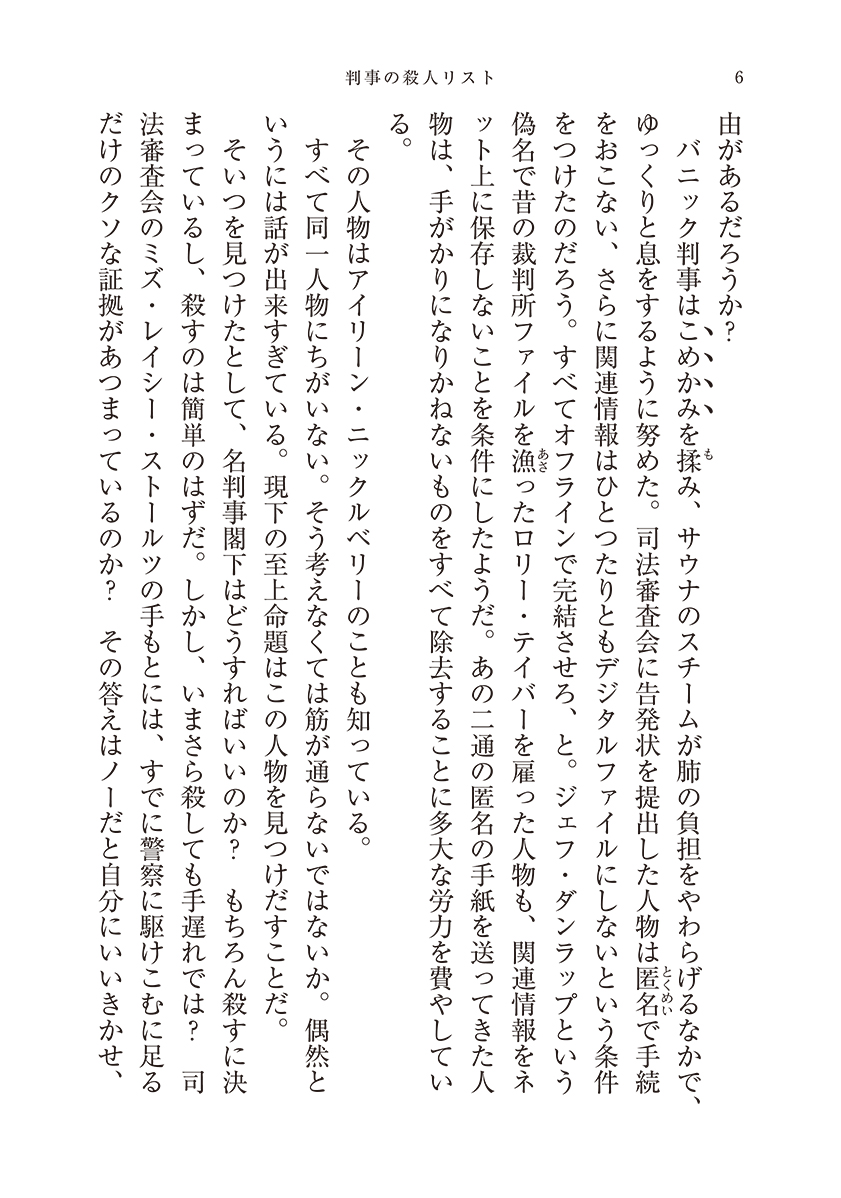 判事の殺人リスト
6
由があるだろうか?
バニック判事はこめかみを揉み、サウナのスチームが肺の負担をやわらげるなかで、
ゆっくりと息をするように努めた。司法審査会に告発状を提出した人物は匿名で手続
をおこない、さらに関連情報はひとつたりともデジタルファイルにしないという条件
をつけたのだろう。すべてオフラインで完結させろ、と。ジェフ・ダンラップという
偽名で昔の裁判所ファイルを漁ったロリー・テイバーを雇った人物も、関連情報をネ
ット上に保存しないことを条件にしたようだ。あの二通の匿名の手紙を送ってきた人
物は、手がかりになりかねないものをすべて除去することに多大な労力を費やしてい
る。
その人物はアイリーン・ニックルベリーのことも知っている。
すべて同一人物にちがいない。そう考えなくては筋が通らないではないか。偶然と
いうには話が出来すぎている。現下の至上命題はこの人物を見つけだすことだ。
そいつを見つけたとして、名判事閣下はどうすればいいのか? もちろん殺すに決
まっているし、殺すのは簡単のはずだ。しかし、いまさら殺しても手遅れでは? 司
法審査会のミズ・レイシー・ストールツの手もとには、すでに警察に駆けこむに足る
だけのクソな証拠があつまっているのか? その答えはノーだと自分にいいきかせ、
も
とくめい
あさ